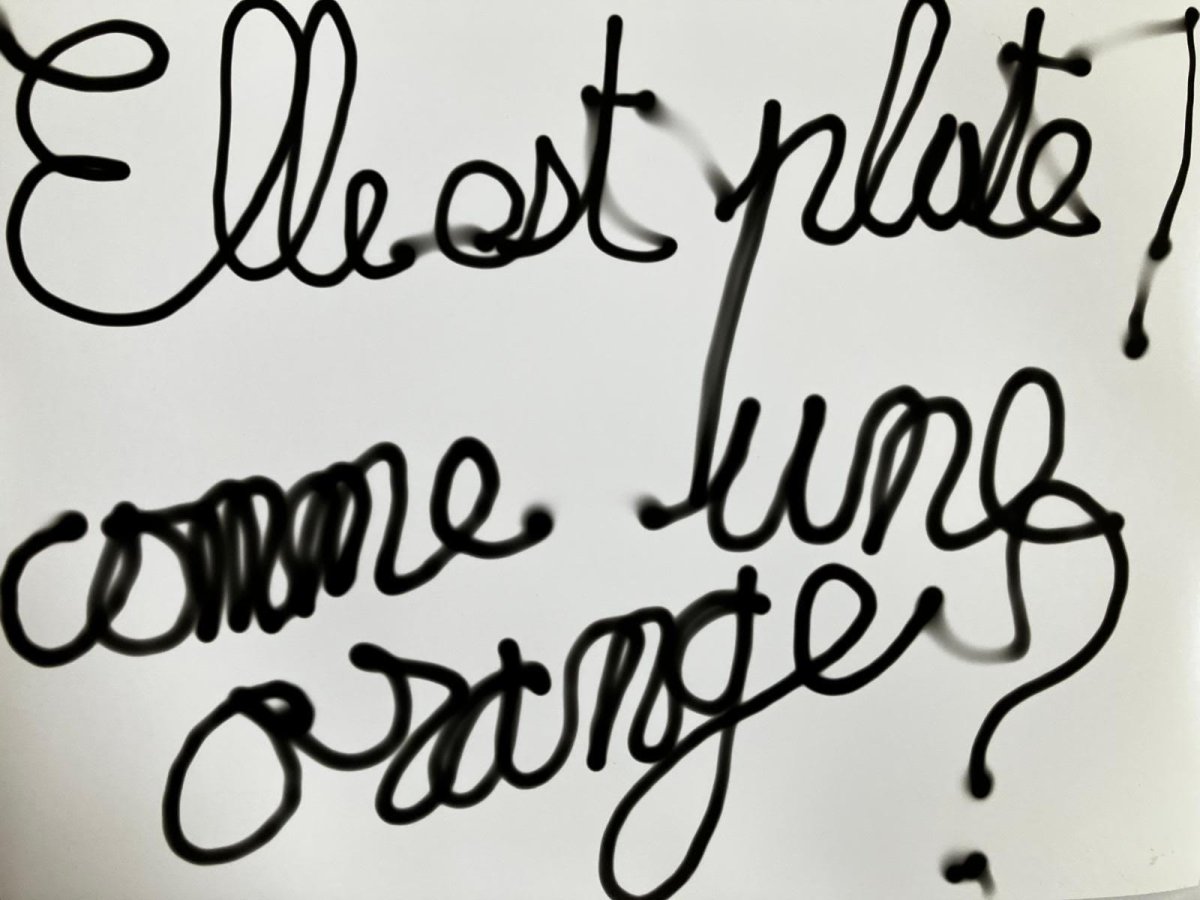 Elle est plate !
comme une
orange ?